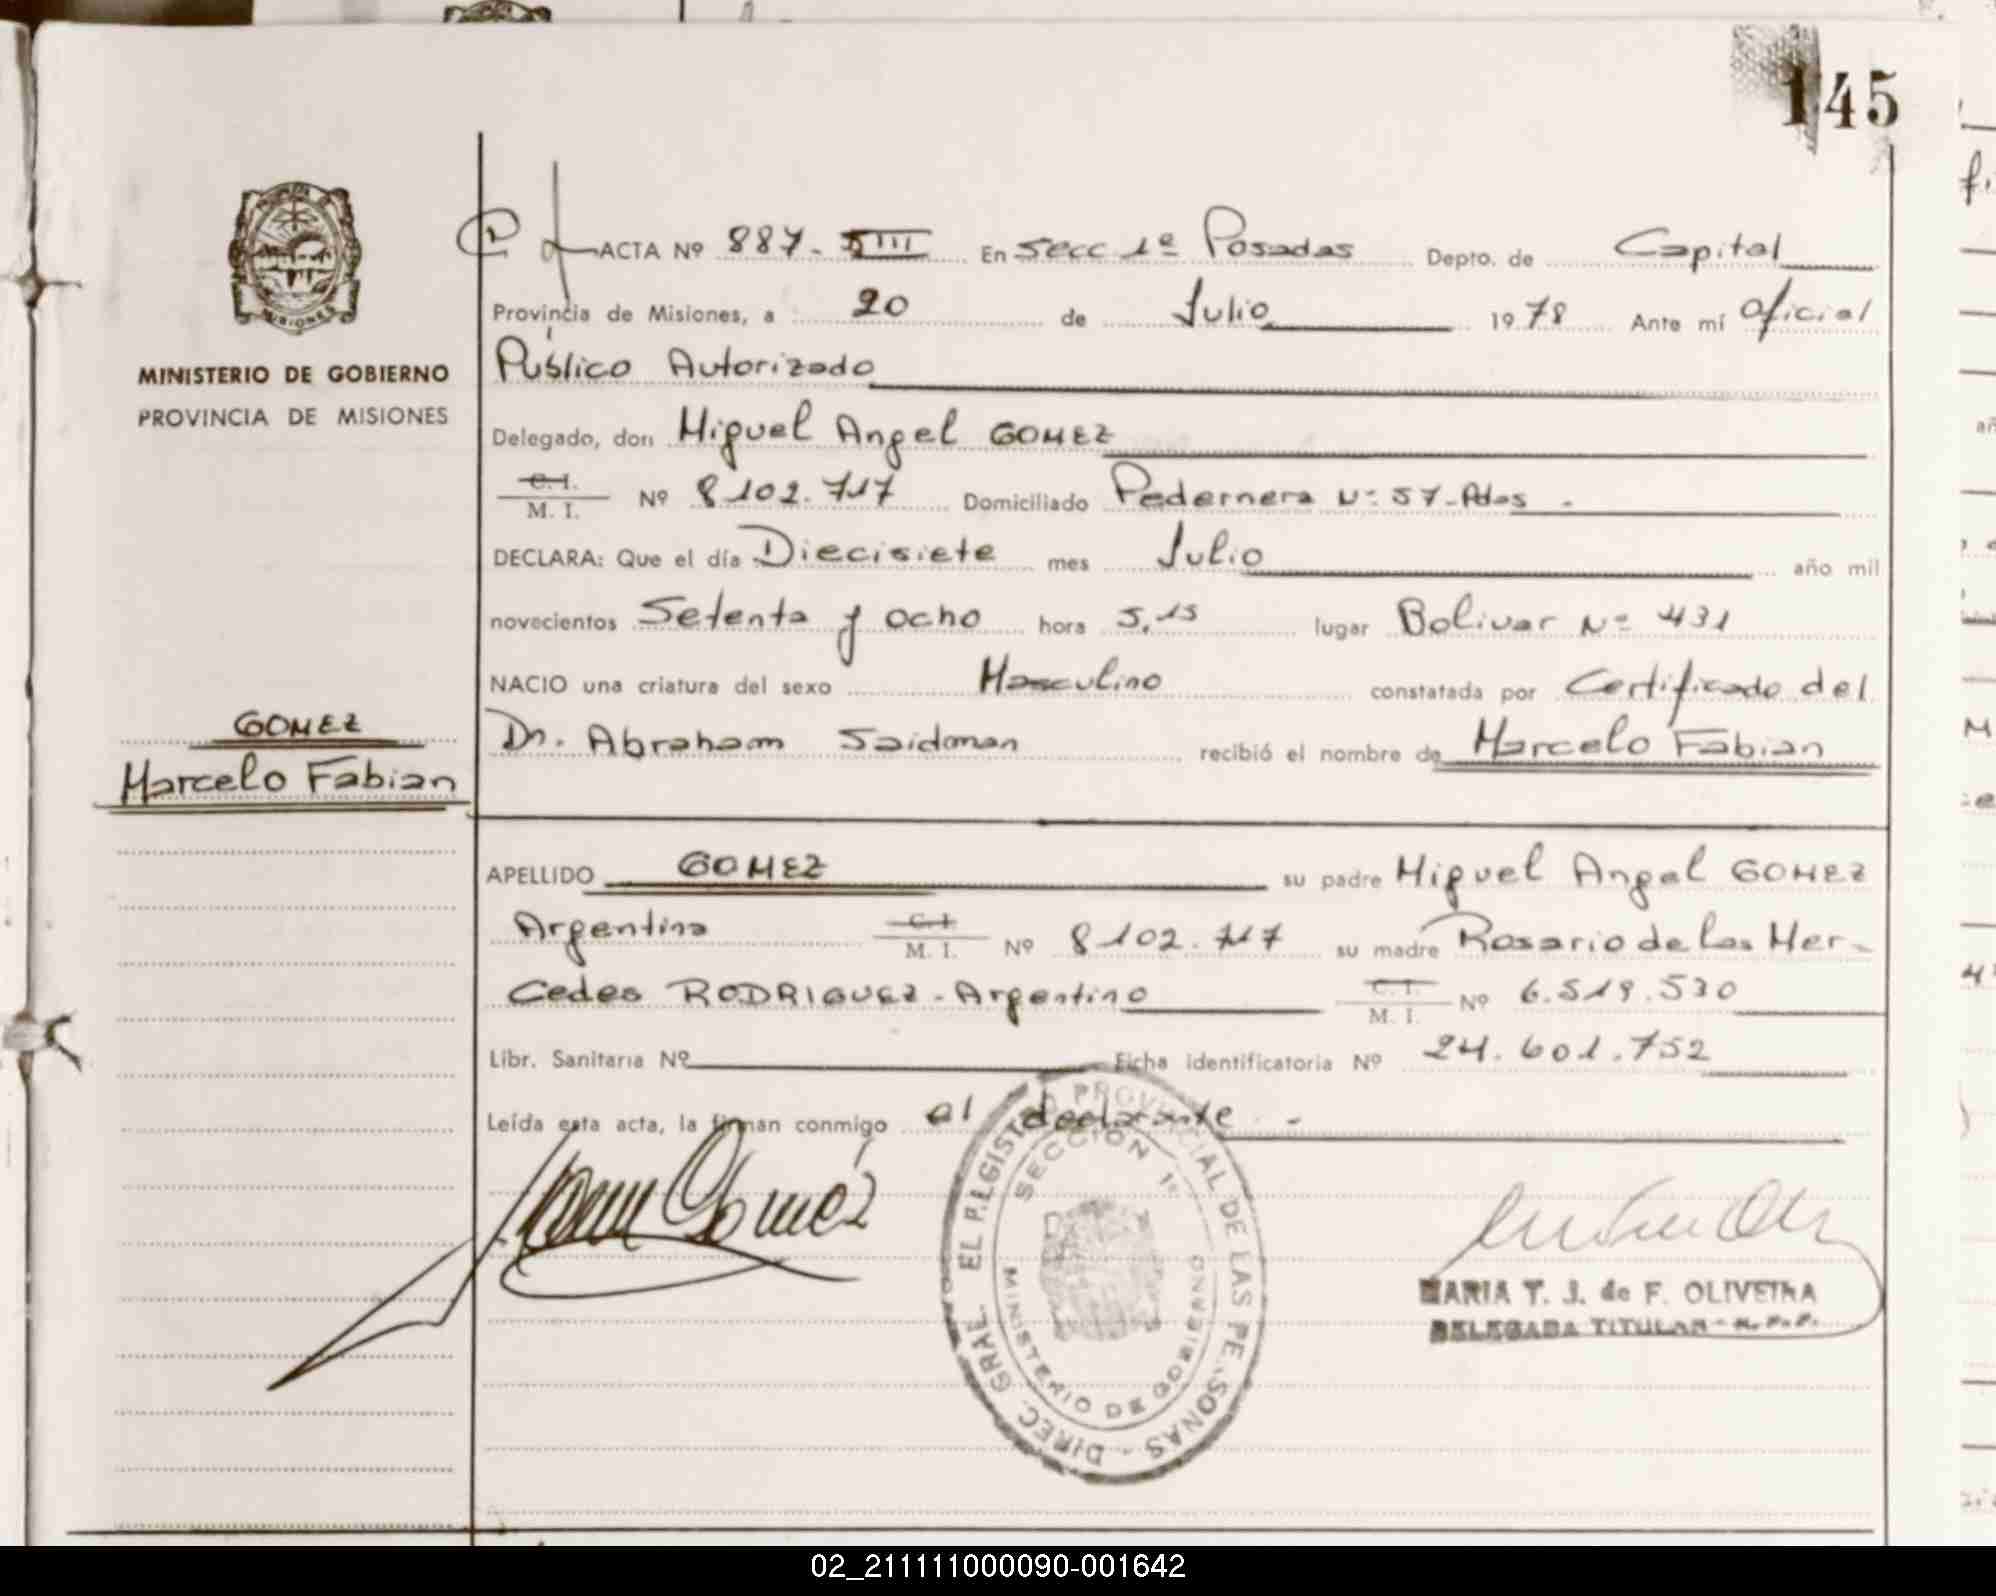 145
ACTA Nº 887- En Secc 1º Posadas Depto. de Capital
Provincia de Misiones, a 20 de Julio 1978 Ante mí Oficial
MINISTERIO DE GOBIERNO
PROVINCIA DE MISIONES
Público Autorizado
Delegado, don Miguel Angel GOMEZ
C.I.
M. I. Nº 8102.717 Domiciliado Pedernera Nº 57-Pdas -
DECLARA: Que el día Diecisiete mes Julio año mil
novecientos Setenta y ocho hora 5,15 lugar Bolivar Nº 431
NACIO una criatura del sexo Masculino constatada por Certificado del
Dr. Abraham Saidman recibió el nombre de Marcelo Fabian
GOMEZ
Marcelo Fabian
APELLIDO GOMEZ su padre Miguel Angel GOMEZ
Argentino C.I. M. I. Nº 8102.717 su madre Rosario de las Mer-
cedes RODRIGUEZ-Argentino C.I. M. I. Nº 6.519.530
Libr. Sanitaria Nº Ficha identificatoria Nº 24.601.752
Leída esta acta, la firman conmigo el declarante -
Gomez
SECCION 1º
MINISTERIO DE GOBIERNO
MARIA T. J. de F. OLIVEIRA
DELEGADA TITULAR - R.P.P.
02_211111000090-001642